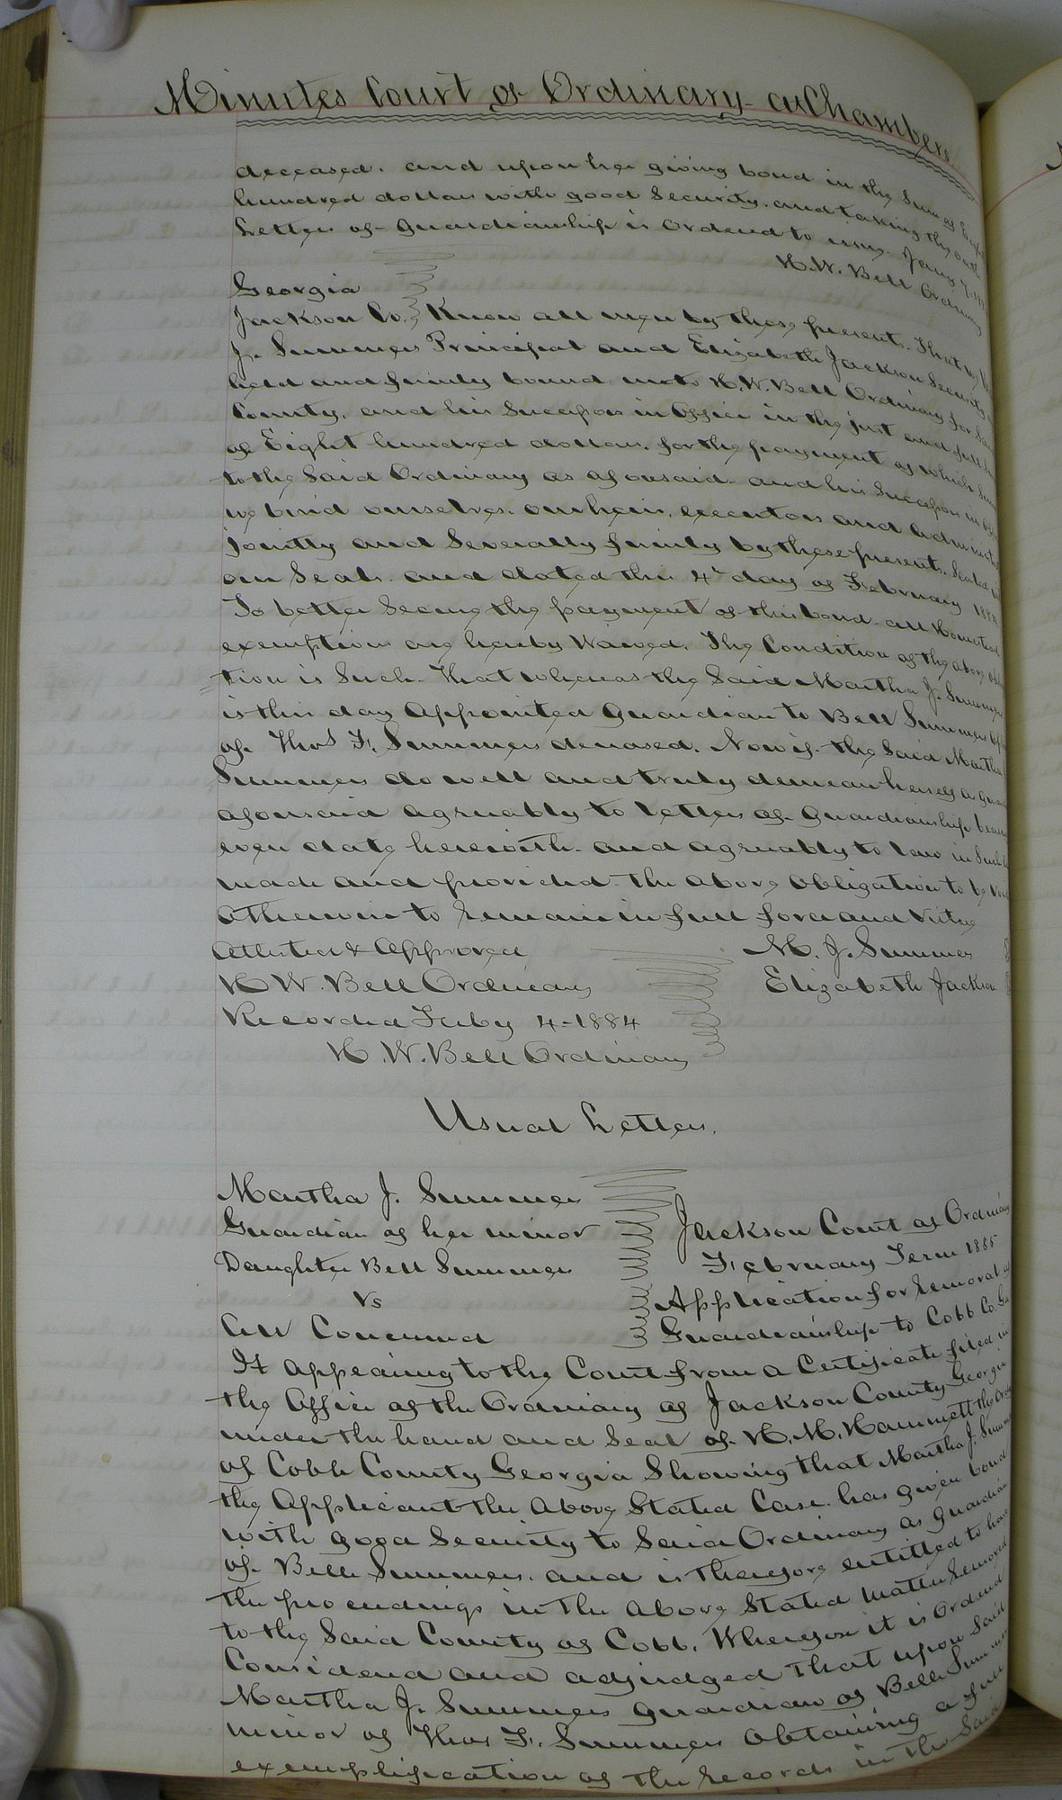 Minutes Court of Ordinary at Chambers
deceased. and upon her giving bond in the Sum of Eight
hundred dollars with good Security. and taking the oath
Letters of Guardianship is Ordered to issue. Jany 7.
H. W. Bell Ordinary
Georgia
Jackson Co. Know all men by these presents. That we
J. Summers Principal and Elizabeth Jackson Security
held and firmly bound unto H. W. Bell Ordinary for Said
County, and his Successors in Office in the just and full
of Eight hundred dollars. for the payment of which
to the Said Ordinary as aforesaid. and his Successors in
we bind ourselves. our heirs, executors and
jointly and Severally firmly by these presents. Sealed
our Seals. and dated this 4th day of February 1884
To better Secure the payment of this bond all Homestead
exemptions are hereby Waived. The Condition of the above
tion is Such. That whereas the Said Martha J. Summers
is this day Appointed Guardian to Bell Summers
of Thos F. Summers deceased. Now if the Said Martha
Summers do well and truly demean herself as
aforesaid agreeably to letters of Guardianship
even date herewith. and agreeably to law in Such
made and provided. the above obligation to be void
Otherwise to remain in full force and Virtue
Attested & Approved M. J. Summers
H W. Bell Ordinary Elizabeth Jackson
Recorded Feby 4-1884
H. W. Bell Ordinary
Usual Letters.
Martha J. Summers
Guardian of her minor Jackson Court of Ordinary
Daughter Bell Summers February Term 1885
Vs Application for removal of
All Concerned Guardianship to Cobb Co. Ga
It appearing to the Court from a Certificate filed in
the Office of the Ordinary of Jackson County Georgia
under the hand and Seal of H. M. Hammett the
of Cobb County Georgia Showing that Martha J. Summers
the Applicant the above Stated Case. has given bond
with good Security to Said Ordinary as Guardian
of Belle Summers. and is therefore entitled to have
the proceedings in the above Stated matter removed
to the Said County of Cobb. Whereupon it is Ordered
Considered and adjudged That upon Said
Martha J. Summers Guardian of Belle Summers
minor of Thos F. Summers obtaining a full
exemplification of the records in the Said